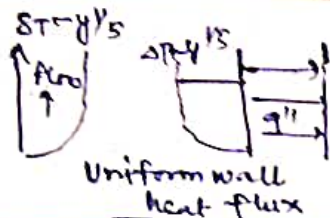 ΔT~y^1/5
flow
ΔT~y^1/5
q"
Uniform wall
heat flux